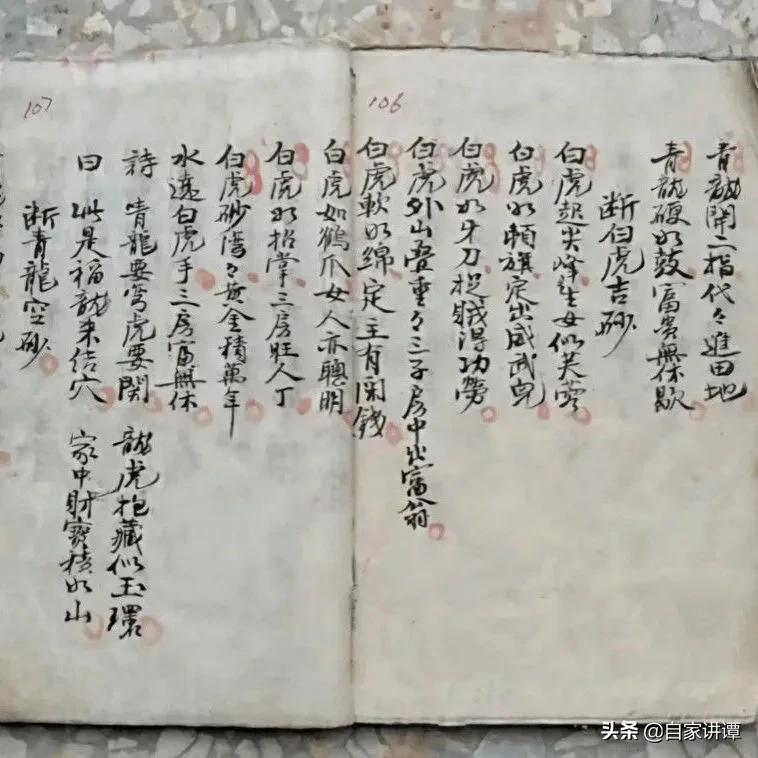 106
青龍開二指代々進田地
青龍硬如鼓富貴無休歇
断白虎吉砂
白虎起尖峰生女似芙蓉
白虎如頓旗定出威武兒
白虎如牙刀捉賊得功勞
白虎外山疊重々三子房中出富翁
白虎軟如綿定主有閑錢
107
白虎如鶴爪女人亦聰明
白虎如招掌三房旺人丁
白虎砂湾々黄金積萬年
水遶白虎手三房富無休
詩 青龍要弯虎要関 龍虎抱藏似玉環
曰 此是福龍来结穴 家中財寶積如山
断青龍空砂
头条 @自家讲谭